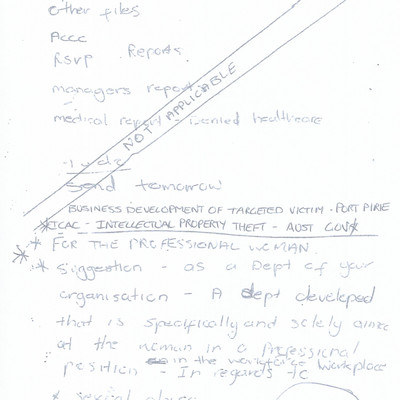 other files
Accc
RSVP Reports.
managers report
medical report - Denied healthcare
NOT APPLICABLE
Send tomorrow
BUSINESS DEVELOPMENT OF TARGETED VICTIM - PORT PIRIE
*ICAC - INTELLECTUAL PROPERTY THEFT - AUST GOV*
* FOR THE PROFESSIONAL WOMAN.
* Suggestion - as a Dept of your
organisation - A dept developed
that is specifically and solely aimed
at the woman in a Professional
position - in the workforce workplace
- In regards to
* sexual abuse